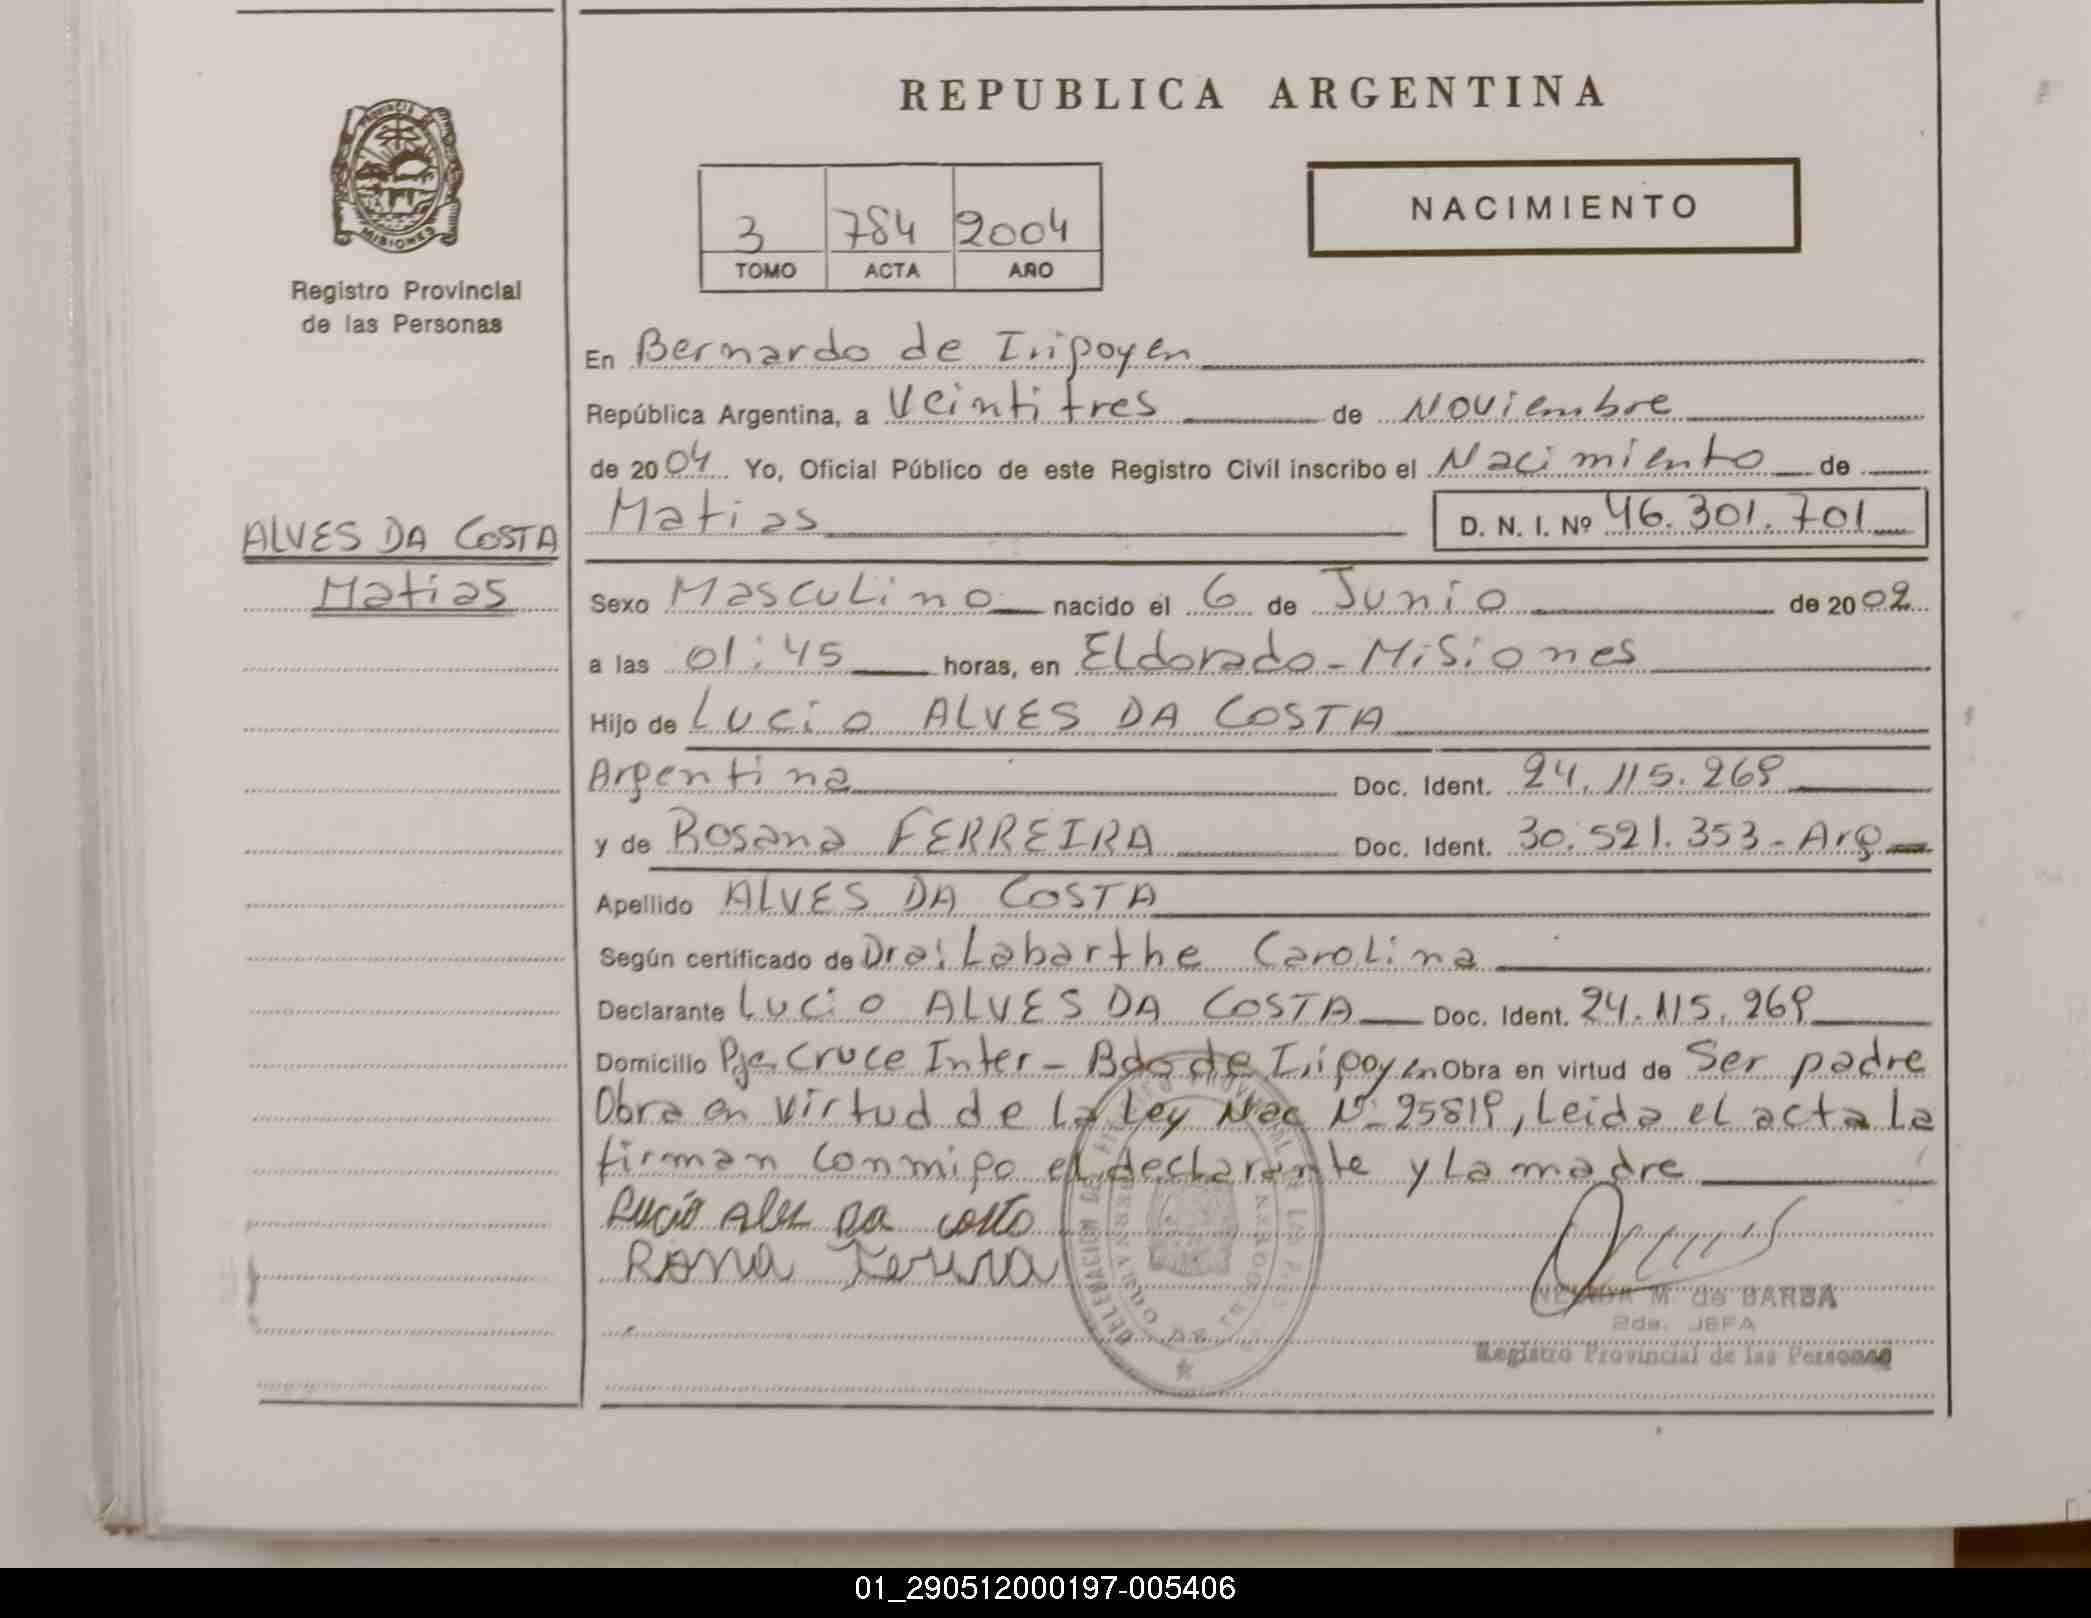 REPUBLICA ARGENTINA
PROVINCIA DE
MISIONES
Registro Provincial
de las Personas
3 784 2004
TOMO ACTA AÑO
NACIMIENTO
En Bernardo de Iripoyen
República Argentina, a Veintitres de Noviembre
de 2004 Yo, Oficial Público de este Registro Civil inscribo el Nacimiento de
ALVES DA COSTA
Matias
Matias D. N. I. Nº 46.301.701
Sexo Masculino nacido el 6 de Junio de 2002
a las 01:45 horas, en Eldorado - Misiones
Hijo de Lucio ALVES DA COSTA
Argentina Doc. Ident. 24.115.269
y de Rosana FERREIRA Doc. Ident. 30.521.353 - Arg
Apellido ALVES DA COSTA
Según certificado de Dra: Labarthe Carolina
Declarante Lucio ALVES DA COSTA Doc. Ident. 24.115.269
Domicilio Pje Cruce Inter - Bdo de Iripoyen Obra en virtud de Ser padre
Obra en virtud de la Ley Nac Nº 25819, Leida el acta la
firman conmigo el declarante y la madre
Lucio Alves da costa
NELIDA M. de BARBA
2da. JEFA
Registro Provincial de las Personas
01_290512000197-005406